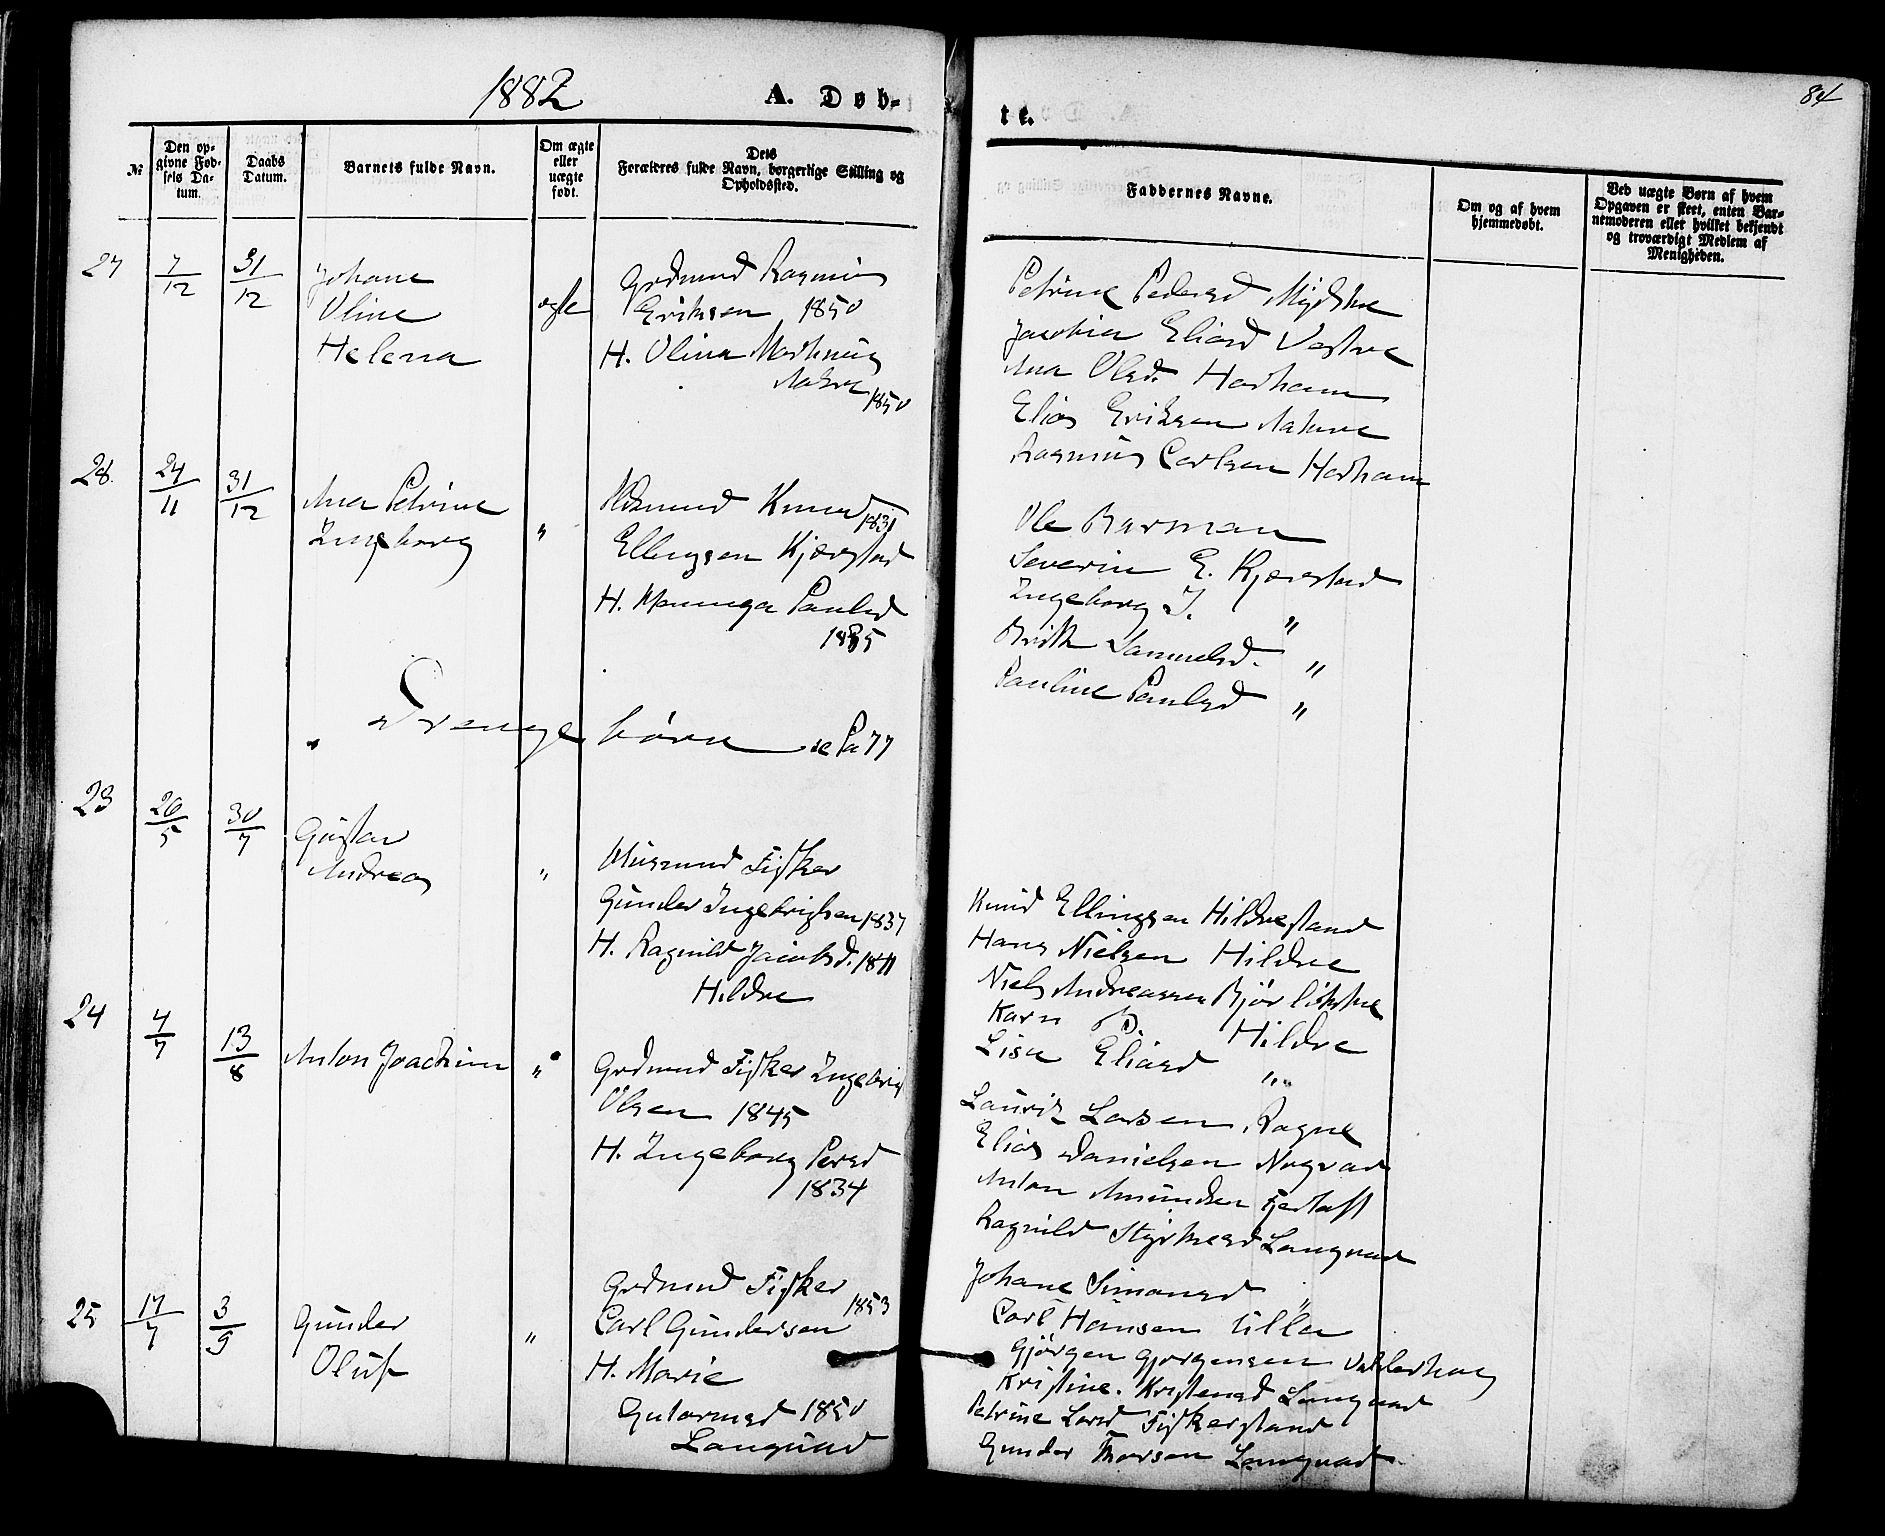 1882
A. Døb-
№
Den op-
givne Fød-
sels Da-
tum.
Daabs
Datum.
Barnets fulde Navn.
Om ægte
eller
uægte
født.
Dets
Forældres fulde Navn, borgerlige Stilling og
Opholdssted.
27 7/12 31/12 Johane
Oline
Helena
ægte
Grdmand Rasmus
Eriksen 1850
H. Olina
1850
28 24/11 31/12 Ana Petrine
Ingeborg
"
Knud 1831
Ellingsen Kjærstad
H. Paulsd
1835
" Drenge børn se Pa 77
23 26/5 30/7 Gustav
Andreas
"
Husmand Fisker
Gunder Ingebrigtsen 1837
H. Ragnild Jacobsd. 1841
Hildre
24 4/7 13/8 Anton Joachim "
Grdmand Fisker Ingebrig
Olsen 1845
H. Ingeborg Persd
1834
25 17/7 3/9 Gunder
Oluf
"
Grdmand Fisker
Carl Gundersen 1853
H. Marie
Gutormsd 1850
Langvad
84
te.
Faddernes Navne.
Om og af hvem
hjemmedøbt.
Ved uægte Børn af hvem
Opgaven er skeet, enten Bar-
nemoderen eller hvilket bekjendt
og troværdigt Medlem af
Menigheden.
Petrine Pedersd
Eliasd
Ana Olsd. Harham
Elias Eriksen
Rasmus Carlsen Harham
Ole Barman
Severin E. Kjærstad
Ingeborg I. "
Brith Samuelsd. "
Pauline Paulsd "
Knud Ellingsen Hildrestrand
Hans Nielsen Hildre
Niels Andreassen
Karn P. Hildre
Lisa Eliasd "
Lauritz Larsen Rogne
Elias Danielsen Nogvad
Anton Amundsen Fjertoft
Ragnild Styrkersd Langvad
Johane Simonsd "
Carl Hansen Ulla
Gjørgen Gjørgensen
Kristine Kristensd Langvad
Petrine Larsd Fiskerstrand
Gunder Thorsen Langvad